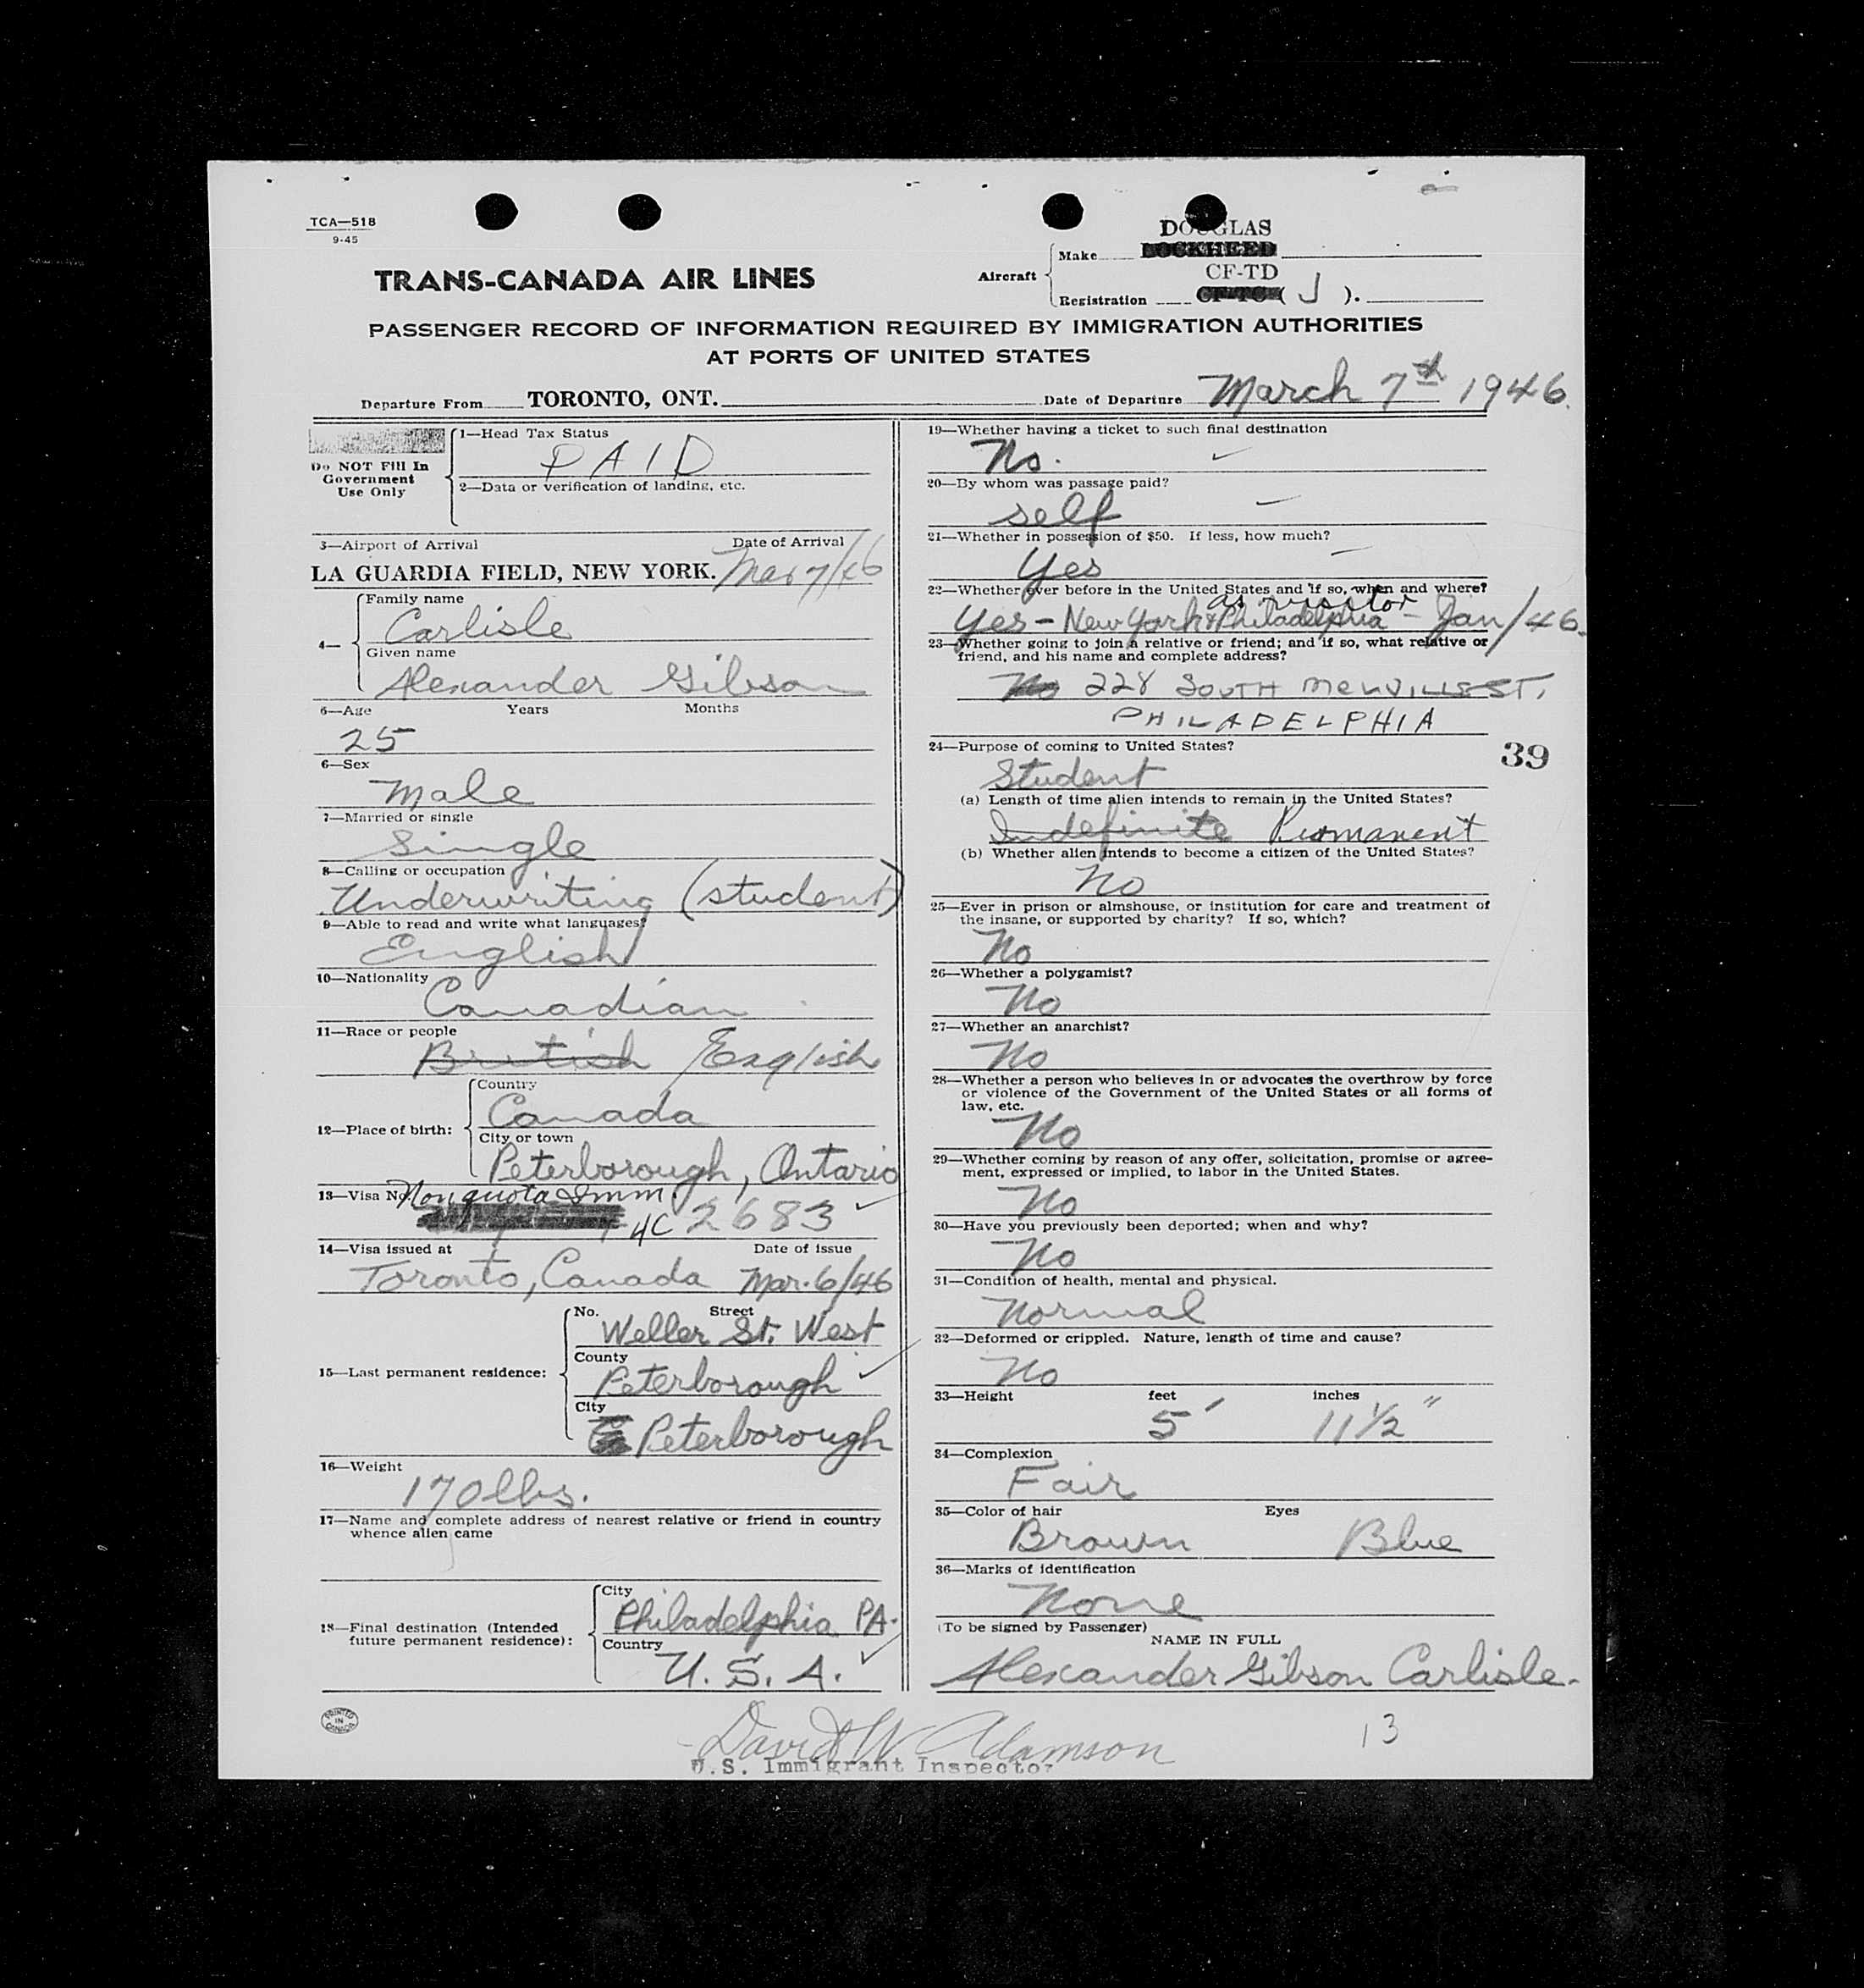 TCA—518
9-45
DOUGLAS
Make LOCKHEED
TRANS-CANADA AIR LINES
Aircraft
CF-TD
Registration CF-TC ( J ).
PASSENGER RECORD OF INFORMATION REQUIRED BY IMMIGRATION AUTHORITIES
AT PORTS OF UNITED STATES
Departure From TORONTO, ONT. Date of Departure March 7th 1946.
Do NOT Fill In
Government
Use Only
1—Head Tax Status
PAID
2—Data or verification of landing, etc.
3—Airport of Arrival Date of Arrival
LA GUARDIA FIELD, NEW YORK. Mar 7/46
4—
Family name
Carlisle
Given name
Alexander Gibson
6—Age Years Months
25
6—Sex
Male
7—Married or single
Single
8—Calling or occupation
Underwriting (student)
9—Able to read and write what languages?
English
10—Nationality
Canadian
11—Race or people
British English
12—Place of birth:
Country
Canada
City or town
Peterborough, Ontario
13—Visa No. Nonquota Imm.
4C 2683
14—Visa issued at Date of issue
Toronto, Canada Mar. 6/46
15—Last permanent residence:
No. Street
Weller St. West
County
Peterborough
City
Peterborough
16—Weight
170 lbs.
17—Name and complete address of nearest relative or friend in country
whence alien came
18—Final destination (Intended
future permanent residence):
City
Philadelphia PA.
Country
U.S.A.
19—Whether having a ticket to such final destination
No.
20—By whom was passage paid?
self
21—Whether in possession of $50. If less, how much?
Yes
22—Whether ever before in the United States and if so, when and where?
as visitor
Yes - New York & Philadelphia - Jan/46.
23—Whether going to join a relative or friend; and if so, what relative or
friend, and his name and complete address?
No 228 SOUTH MELVILLE ST,
PHILADELPHIA
24—Purpose of coming to United States?
Student
39
(a) Length of time alien intends to remain in the United States?
Indefinite Permanent
(b) Whether alien intends to become a citizen of the United States?
No
25—Ever in prison or almshouse, or institution for care and treatment of
the insane, or supported by charity? If so, which?
No
26—Whether a polygamist?
No
27—Whether an anarchist?
No
28—Whether a person who believes in or advocates the overthrow by force
or violence of the Government of the United States or all forms of
law, etc.
No
29—Whether coming by reason of any offer, solicitation, promise or agree-
ment, expressed or implied, to labor in the United States.
No
30—Have you previously been deported; when and why?
No
31—Condition of health, mental and physical.
Normal
32—Deformed or crippled. Nature, length of time and cause?
No
33—Height feet inches
5' 11 1/2"
34—Complexion
Fair
35—Color of hair Eyes
Brown Blue
36—Marks of identification
None
(To be signed by Passenger)
NAME IN FULL
Alexander Gibson Carlisle.
PRINTED
IN
CANADA
David W Adamson
U.S. Immigrant Inspector
13